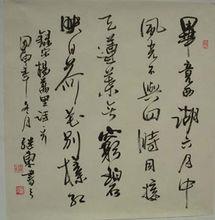 畢竟西湖六月中
風光不與四時同接
天蓮葉無窮碧
映日荷花別樣紅
錄宋楊萬里詩
年 月 書